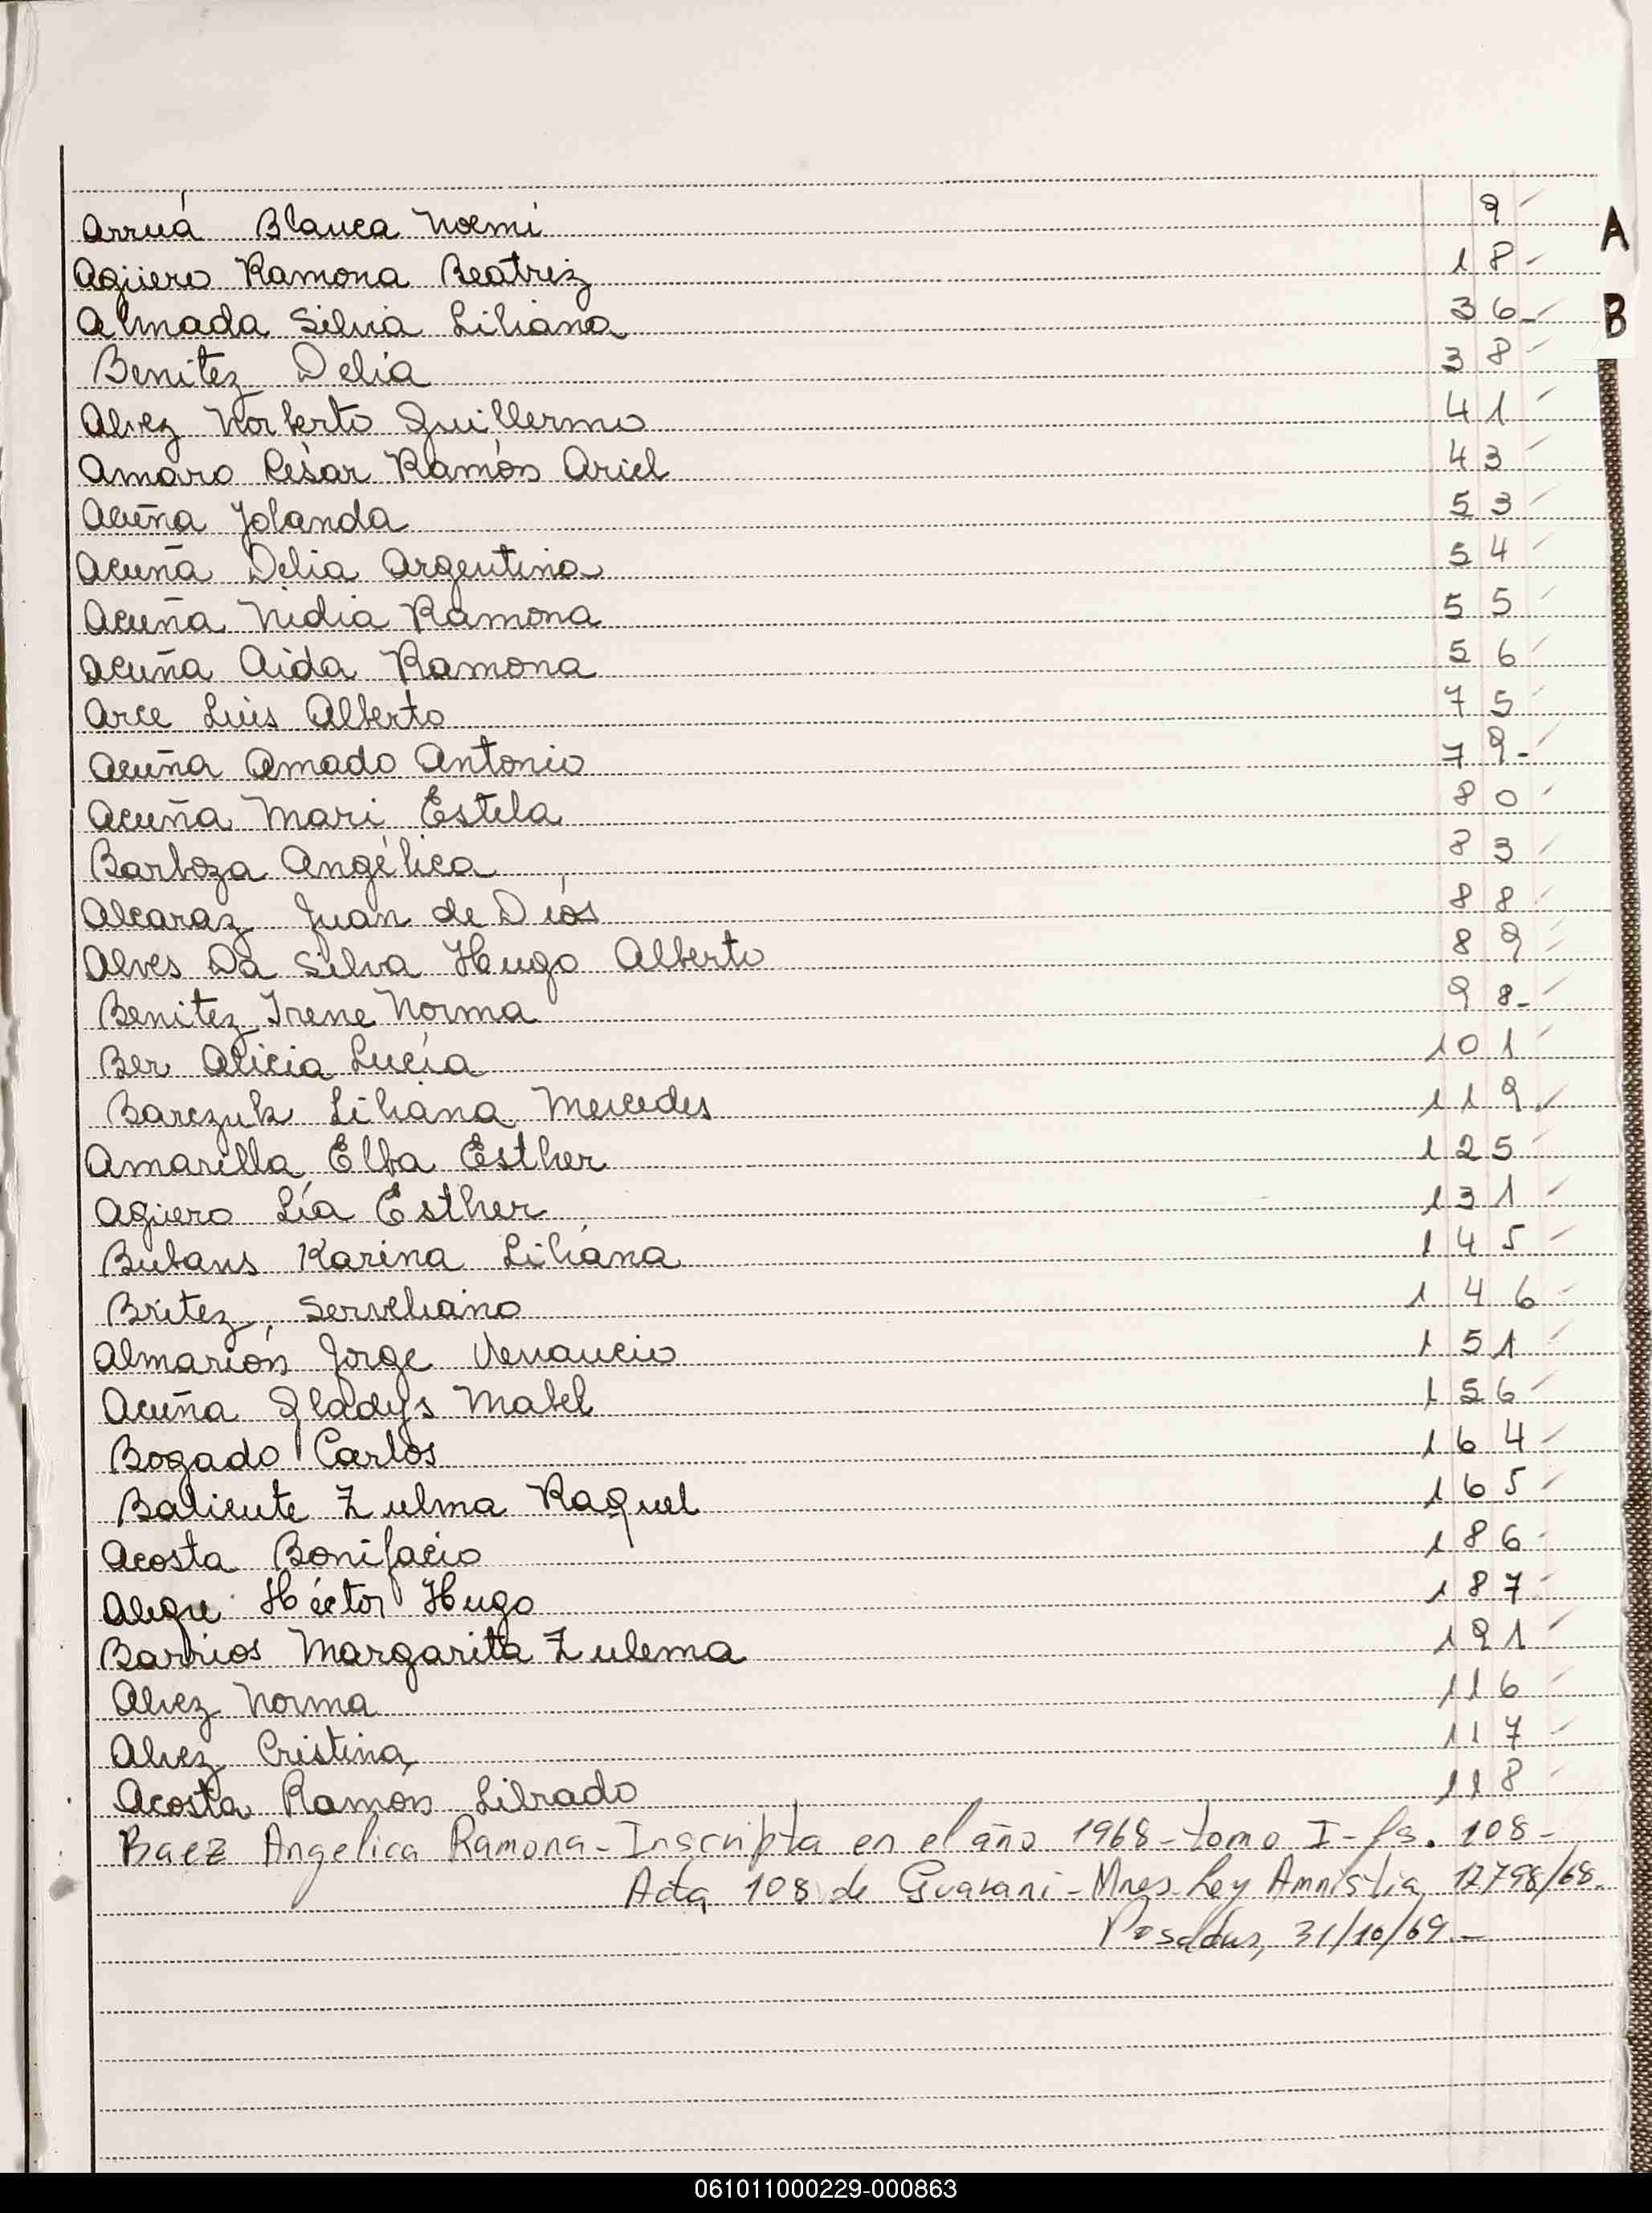 Arruá Blanca Noemi 9
A
Agüero Ramona Beatriz 18-
Almada Silvia Liliana 36-
B
Benitez Delia 38
Alvez Norberto Guillermo 41
Amaro César Ramón Ariel 43
Acuña Yolanda 53
Acuña Delia Argentina 54
Acuña Nidia Ramona 55
Acuña Aida Ramona 56
Arce Luis Alberto 75
Acuña Amado Antonio 79-
Acuña Mari Estela 80
Barboza Angélica 83
Alcaraz Juan de Dios 88
Alves Da Silva Hugo Alberto 89
Benitez Irene Norma 98-
Ber Alicia Lucía 101
Barczuk Liliana Mercedes 119
Amarilla Elba Esther 125
Agüero Lía Esther 131
Bubans Karina Liliana 145
Britez, Serveliano 146
Almarión Jorge Venancio 151
Acuña Gladys Mabel 156
Bogado Carlos 164
Baliente Zulma Raquel 165
Acosta Bonifacio 186
Alegre Héctor Hugo 187
Barrios Margarita Zulema 191
Alvez Norma 116
Alvez Cristina 117
Acosta Ramón Librado 118
Baez Angelica Ramona - Inscripta en el año 1968 - tomo I - fs. 108 -
Acta 108 de Guarani - Mnes. Ley Amnistia 17798/68.
Posadas, 31/10/69.-
061011000229-000863